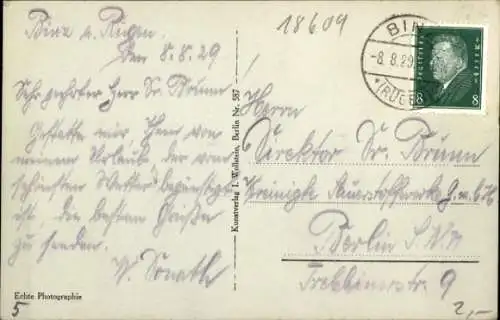 Binz a. Rügen
den 8.8.29
Sehr geehrter Herr Dr. Brunn
Gestatte mir Ihnen von
meinem Urlaube der vom
schönsten Wetter begünstigt
ist, die besten Grüße
zu senden.
W.
Echte Photographie
5
Kunstverlag J. Wollstein, Berlin Nr. 587
18609
BINZ
-8.8.29
*(RÜGEN
8 8
Herrn
Direktor Dr. Brunn
Vereinigte Sauerstoffwerke G.m.b.H
Berlin S.W.
Trebbinerstr. 9
2,-